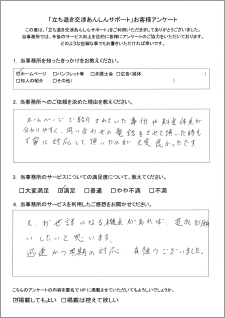 「立ち退き交渉あんしんサポート」お客様アンケート
この度は、「立ち退き交渉あんしんサポート」をご利用いただきましてありがとうございました。
当事務所では、今後のサービス向上を目的に皆様にアンケートのご協力をいただいております。
どのような些細な事でもお書きいただければ幸いです。
1. 当事務所を知ったきっかけをお教えください。
☑ホームページ □パンフレット等 □弁護士会 □広告(媒体: )
□知人の紹介 □その他( )
2. 当事務所へのご依頼を決めた理由を教えください。
ホームページで紹介されていた事例や料金体系が
分かりやすく、問い合わせの電話をさせて頂いた時も
丁寧に対応して頂いたのが大変良かったです
3. 当事務所のサービスについての満足度について、教えてください。
□大変満足 ☑満足 □普通 □やや不満 □不満
4. 当事務所のサービスを利用したご感想をお聞かせください。
又、お世話になる機会があれば、是非お願
いしたいと思います。
迅速かつ丁寧の対応 有難うございました。
こちらのアンケートの内容を匿名でHPに掲載させていただいてもよろしいでしょうか。
☑掲載してもよい □掲載は控えて欲しい